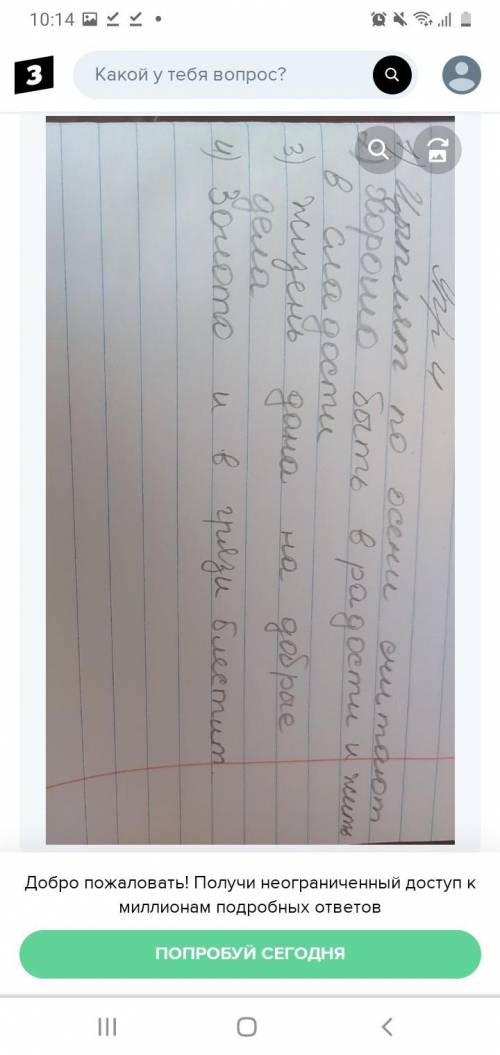 10:14
3
Какой у тебя вопрос?
Упр 4
1) Цыплят по осени считают
2) Хорошо быть в радости и жить
в сладости
3) Жизень дана на добрые
дела
4) Золото и в грязи блестит.
Добро пожаловать! Получи неограниченный доступ к
миллионам подробных ответов
ПОПРОБУЙ СЕГОДНЯ